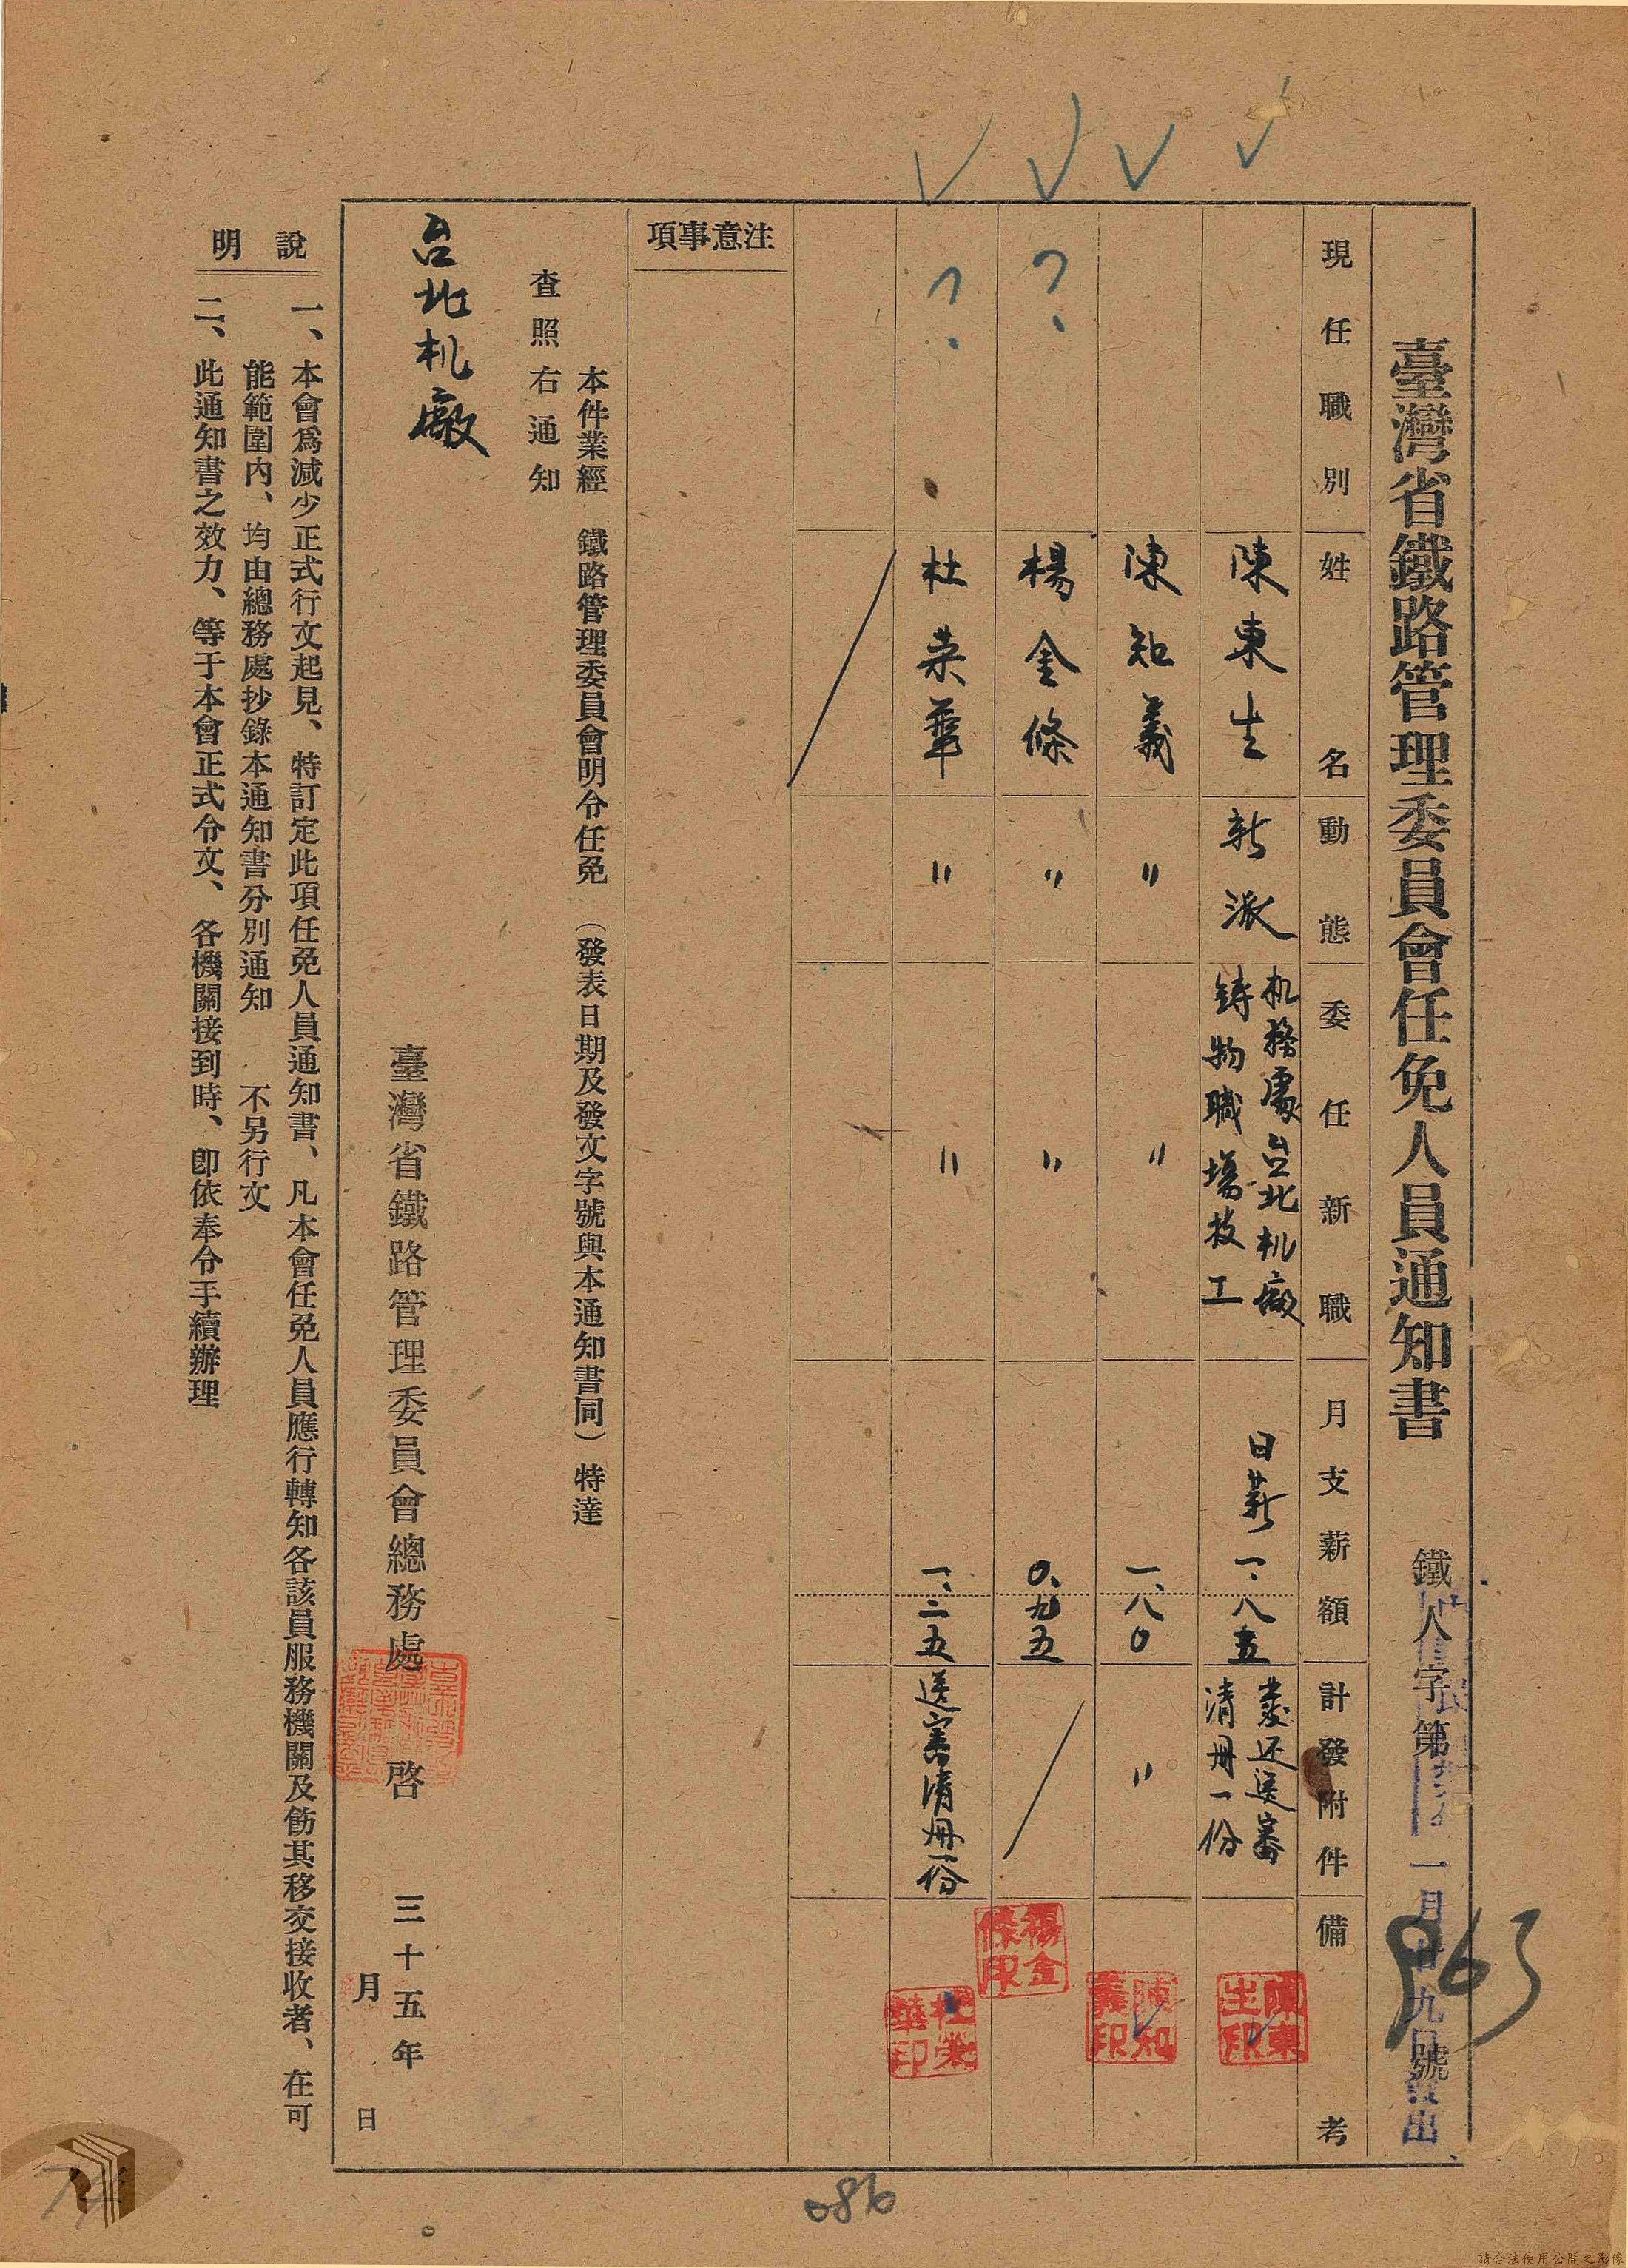 臺灣省鐵路管理委員會任免人員通知書
鐵人字第
號
963
一月廿九日發出
現任職別
姓名
動態
委任新職
月支薪額
計發附件
備考
陳東生
新派
机務處台北机廠
鋳物職場技工
日薪 一.八五
發还送審
清冊一份
陳東生印
陳知義
〃
〃
一.八0
〃
陳知義印
?
楊金條
〃
〃
0.九五
楊金條印
?
杜荣華
〃
〃
一.二五
送審清冊一份
杜榮華印
注意事項
本件業經 鐵路管理委員會明令任免 (發表日期及發文字號與本通知書同) 特達
查照右通知
台北机廠
臺灣省鐵路管理委員會總務處 啓
三十五年
月 日
說明
一、本會爲減少正式行文起見、特訂定此項任免人員通知書、凡本會任免人員應行轉知各該員服務機關及飭其移交接收者、在可
能範圍內、均由總務處抄錄本通知書分別通知 不另行文
二、此通知書之效力、等于本會正式令文、各機關接到時、卽依奉令手續辦理
086
74
請合法使用公開之影像